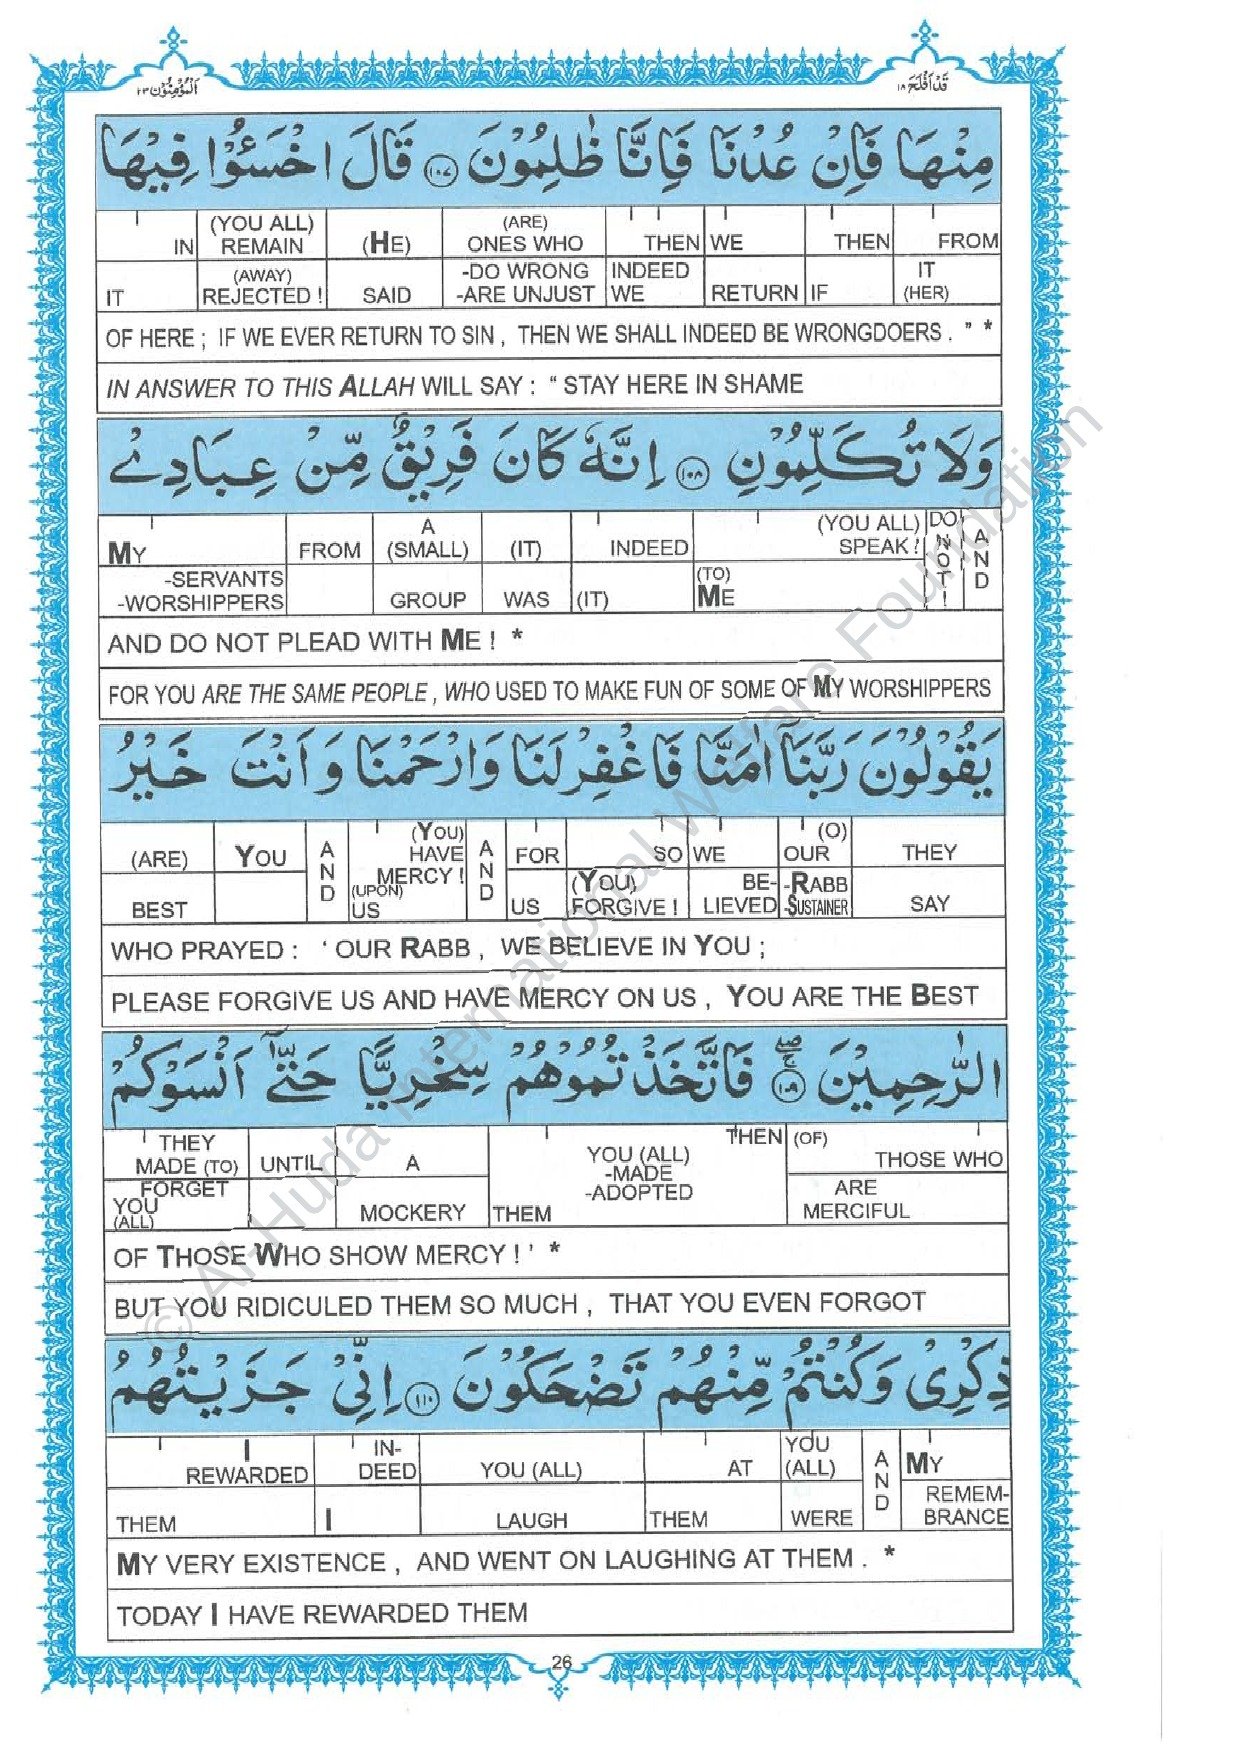 المؤمنون ٢٣
قد افلح ١٨
مِنْهَا فَاِنْ عُدْنَا فَاِنَّا ظٰلِمُوْنَ ١٠٧ قَالَ اخْسَئُوْا فِيْهَا
IN (YOU ALL) REMAIN (HE) (ARE) ONES WHO THEN WE THEN FROM
IT (AWAY) REJECTED ! SAID -DO WRONG -ARE UNJUST INDEED WE RETURN IF IT (HER)
OF HERE ; IF WE EVER RETURN TO SIN , THEN WE SHALL INDEED BE WRONGDOERS . ” *
IN ANSWER TO THIS ALLAH WILL SAY : “ STAY HERE IN SHAME
وَلَا تُكَلِّمُوْنِ ١٠٨ اِنَّهٗ كَانَ فَرِيْقٌ مِّنْ عِبَادِيْ
MY FROM A (SMALL) (IT) INDEED (YOU ALL) SPEAK ! DO NOT ! AND
-SERVANTS -WORSHIPPERS GROUP WAS (IT) (TO) ME
AND DO NOT PLEAD WITH ME ! *
FOR YOU ARE THE SAME PEOPLE , WHO USED TO MAKE FUN OF SOME OF MY WORSHIPPERS
يَقُوْلُوْنَ رَبَّنَآ اٰمَنَّا فَاغْفِرْ لَنَا وَارْحَمْنَا وَاَنْتَ خَيْرُ
(ARE) YOU AND (YOU) HAVE MERCY ! AND FOR SO WE (O) OUR THEY
BEST (UPON) US US (YOU) FORGIVE ! BE- LIEVED -RABB -SUSTAINER SAY
WHO PRAYED : ‘ OUR RABB , WE BELIEVE IN YOU ;
PLEASE FORGIVE US AND HAVE MERCY ON US , YOU ARE THE BEST
الرّٰحِمِيْنَ ١٠٩ فَاتَّخَذْتُمُوْهُمْ سِخْرِيًّا حَتّٰٓى اَنْسَوْكُمْ
THEY MADE (TO) UNTIL A YOU (ALL) -MADE -ADOPTED THEN (OF) THOSE WHO
FORGET YOU (ALL) MOCKERY THEM ARE MERCIFUL
OF THOSE WHO SHOW MERCY ! ’ *
BUT YOU RIDICULED THEM SO MUCH , THAT YOU EVEN FORGOT
ذِكْرِيْ وَكُنْتُمْ مِّنْهُمْ تَضْحَكُوْنَ ١١٠ اِنِّيْ جَزَيْتُهُمُ
I REWARDED IN- DEED YOU (ALL) AT YOU (ALL) AND MY
THEM I LAUGH THEM WERE REMEM- BRANCE
MY VERY EXISTENCE , AND WENT ON LAUGHING AT THEM . *
TODAY I HAVE REWARDED THEM
26
© Al-Huda International Welfare Foundation